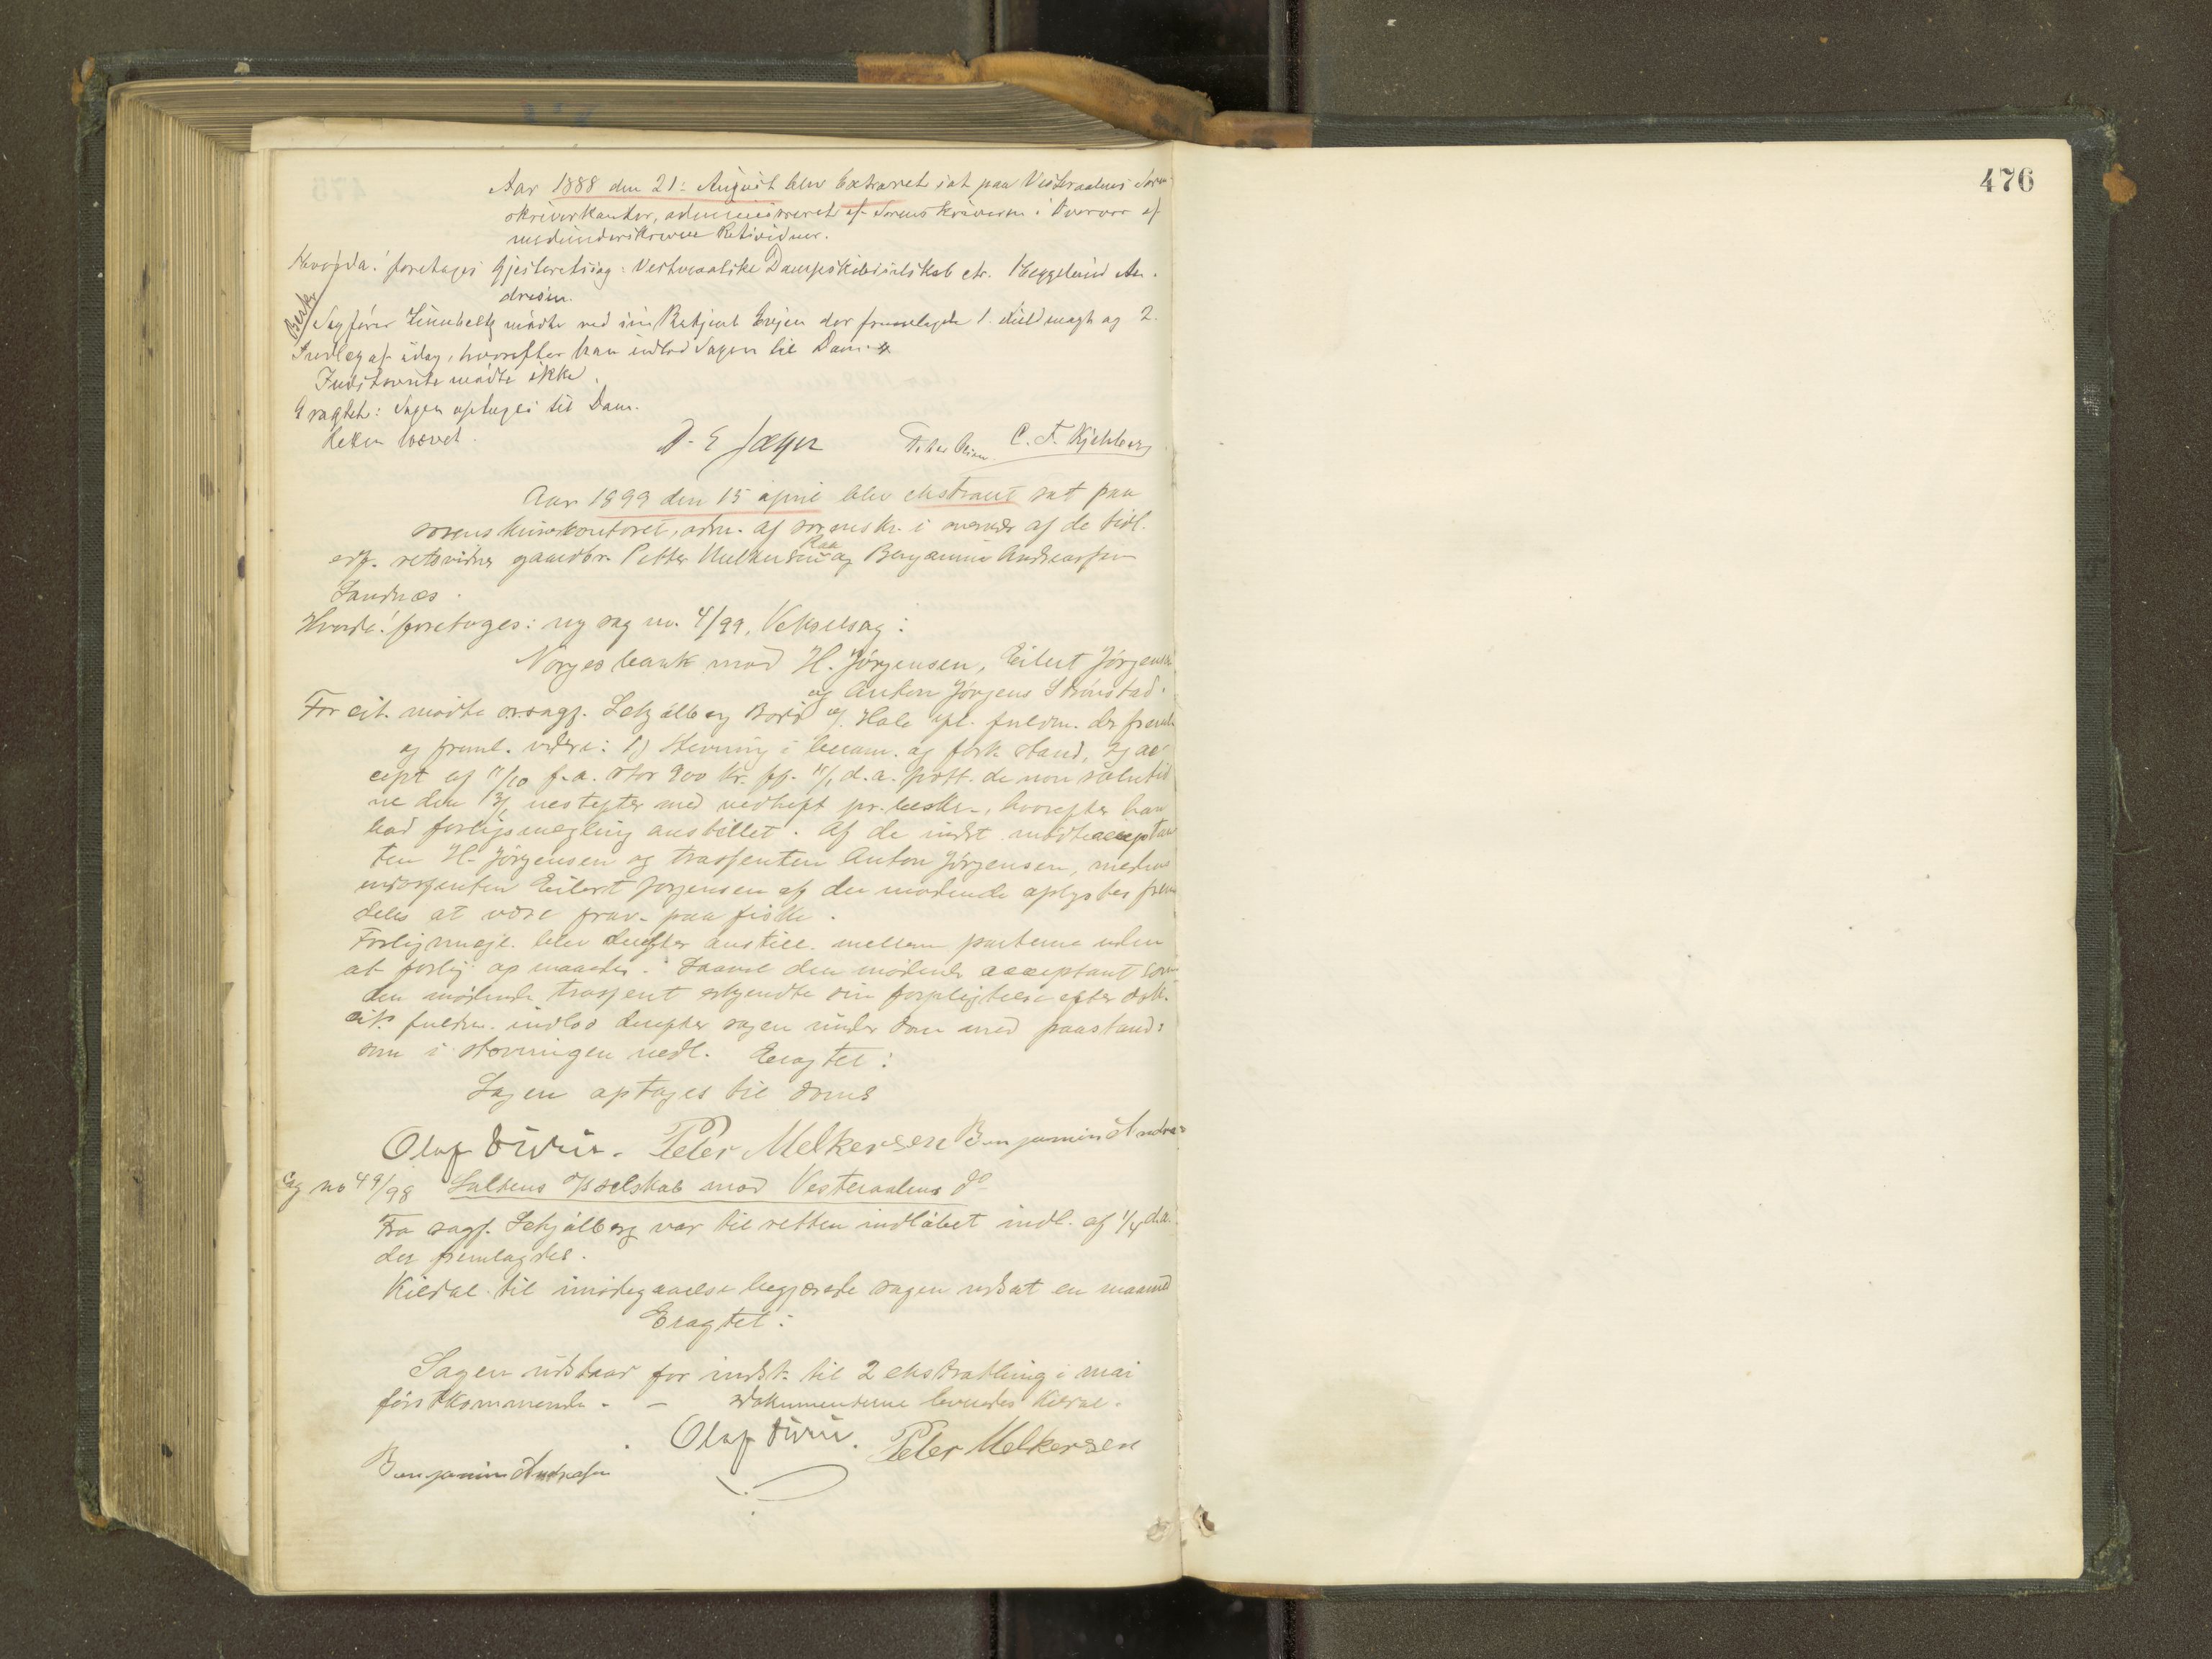 476
Aar 1888 den 21. August blev Extraret sat paa Vesteraalens Soren-
skriverkontor, administreret af Sorenskriveren i Overvær af
medunderskrevne Retsvidner.
Hvorda: foretages Gjesteretssag: Vesteraalske Dampskibsselskab ctr. Heggelund An-
dresen.
Besk
Sagfører mødte ved sin der fremlagde 1. Fuldmagt og 2.
Indlæg af idag, hvorefter han indlod Sagen til Dom.
Indstevnte mødte ikke.
Eragtet: Sagen optages til Dom.
Retten hævet.
D. E Jæger Peder Olsen C. F. Kjelberg
Aar 1899 den 15 april blev ekstraret sat paa
sorenskriverkontoret, adm. af sorenskr. i overvær af de tidl.
edf. retsvidner gaardbr. Petter Melkersen Raa og Benjamin Andreassen
Sandnæs.
Hvorda: foretoges: ny sag no. 4/99, Vekselsag:
Norges bank mod H. Jørgensen, Eilert Jørgensen
og Anton Jørgens Strønstad.
For cit. mødte o.r.sagf. Schjølberg Bodø af Hals ifl. fuldm. der freml.
og freml. videre: 1) Stevning i beram. og fork. stand, 2) ac-
cept af 11/10 f.a. stor 900 kr. pf. 11/1 d.a. prot. de non solutio-
ne den 13/1 nestefter med vedheft pr. besk., hvorefter han
bad forligsmegling anstillet. Af de indst. mødte acceptan
ten H. Jørgensen og trassenten Anton Jørgensen, medens
endossenten Eilert Jørgensen af de mødende oplystes frem
deles at være frav. paa fiske.
Forligsmegl. blev derefter anstill. mellem parterne uden
at forlig opnaaedes. Saavel den mødende acceptant som
den mødende trassent erkjendte sin forpligtelse efter dok.
Cit. fuldm. indlod derefter sagen under dom med paastand:
som i stevningen nedl. Eragtet:
Sagen optages til doms
Olaf Peter Melkersen Benjamin Andrea
Sag no 49/98 Saltens D/S selskab mod Vesteraalens do
Fra sagf. Schjølberg var til retten indløbet indl. af 1/4 d.a.
der fremlagdes.
Kildal til imødegaaelse begjærede sagen udsat en maaned
Eragtet:
Sagen udstaar for indst. til 2 ekstratling i mai
førstkommende. - Dokumenterne leveredes Kildal.
Olaf Peter Melkersen
Benjamin Andreasen